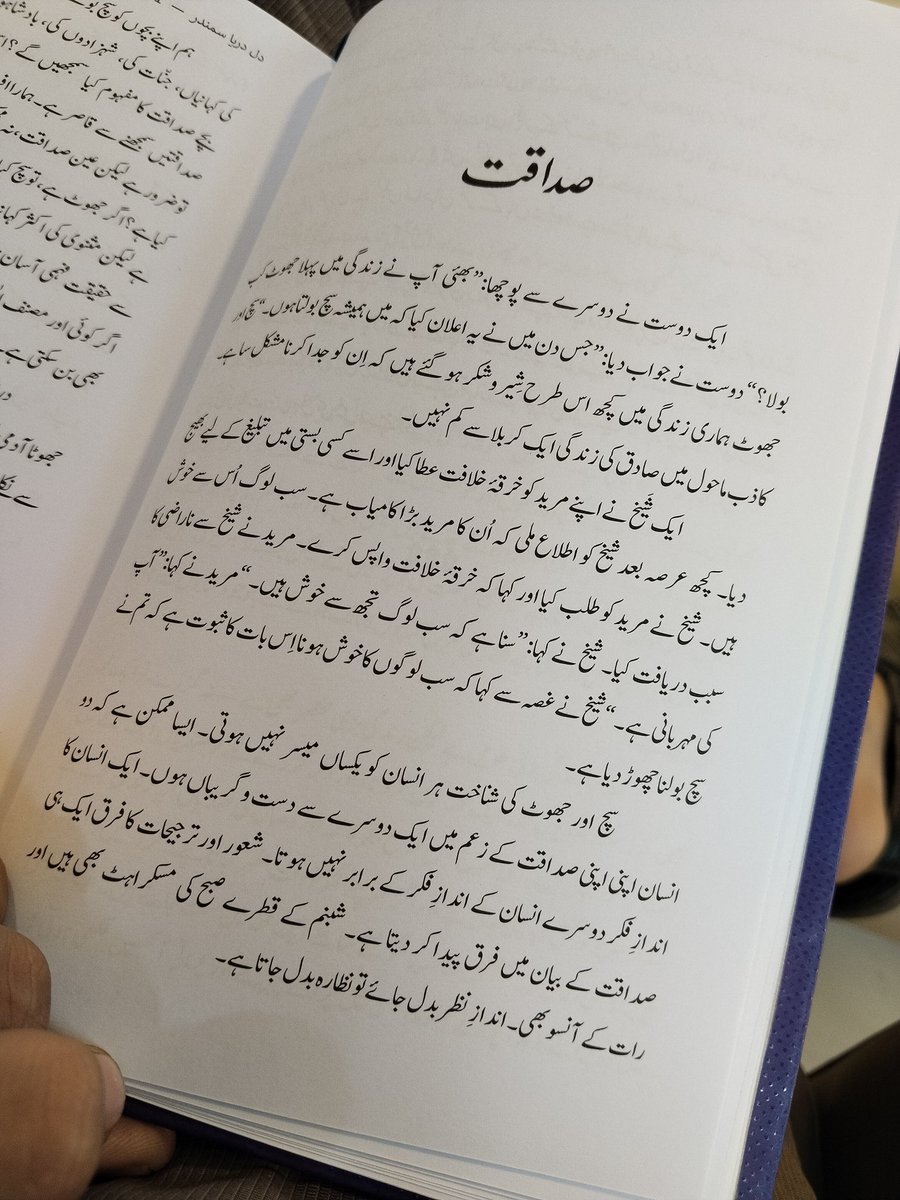 دل دریا سمندر
ہم اپنے بچوں کو سچ
کی کہانیاں، جنّات کی، شہزادوں کی،
بچے صداقت کا مفہوم کیا سمجھیں گے؟
صداقتیں سمجھنے سے قاصر ہے۔ ہمارا
تو ضرور ہے لیکن عین صداقت، نہ
کیا ہے؟ اگر جھوٹ ہے، تو سچ
ہے لیکن مثنوی کی اکثر
سے حقیقت فہمی آسان
اگر کوئی اور مصنف
بھی بن سکتی ہے۔
جھوٹا آدمی
صداقت
ایک دوست نے دوسرے سے پوچھا: ”بھئی آپ نے زندگی میں پہلا جھوٹ کب
بولا؟“ دوست نے جواب دیا: ”جس دن میں نے یہ اعلان کیا کہ میں ہمیشہ سچ بولتا ہوں۔“ سچ اور
جھوٹ ہماری زندگی میں کچھ اس طرح شِیر و شکر ہو گئے ہیں کہ اِن کو جدا کرنا مشکل سا ہے۔
کاذب ماحول میں صادق کی زندگی ایک کربلا سے کم نہیں۔
ایک شَیخ نے اپنے مرید کو خرقۂ خلافت عطا کیا اور اسے کسی بستی میں تبلیغ کے لیے بھیج
دیا۔ کچھ عرصہ بعد شیخ کو اطلاع ملی کہ اُن کا مرید بڑا کامیاب ہے۔ سب لوگ اُس سے خوش
ہیں۔ شیخ نے مرید کو طلب کیا اور کہا کہ خرقۂ خلافت واپس کرے۔ مرید نے شیخ سے ناراضی کا
سبب دریافت کیا۔ شیخ نے کہا: ”سنا ہے کہ سب لوگ تجھ سے خوش ہیں۔“ مرید نے کہا: ”آپ
کی مہربانی ہے۔“ شیخ نے غصہ سے کہا کہ سب لوگوں کا خوش ہونا اِس بات کا ثبوت ہے کہ تم نے
سچ بولنا چھوڑ دیا ہے۔
سچ اور جھوٹ کی شناخت ہر انسان کو یکساں میسر نہیں ہوتی۔ ایسا ممکن ہے کہ دو
انسان اپنی اپنی صداقت کے زعم میں ایک دوسرے سے دست و گریباں ہوں۔ ایک انسان کا
اندازِ فکر دوسرے انسان کے اندازِ فکر کے برابر نہیں ہوتا۔ شعور اور ترجیحات کا فرق ایک ہی
صداقت کے بیان میں فرق پیدا کر دیتا ہے۔ شبنم کے قطرے صبح کی مسکراہٹ بھی ہیں اور
رات کے آنسو بھی۔ اندازِ نظر بدل جائے تو نظارہ بدل جاتا ہے۔